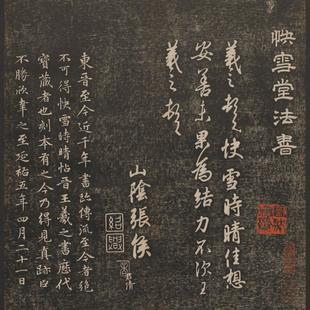 快雪堂法書
羲之頓首快雪時晴佳想
安善未果為結力不次王
羲之頓首
山陰張侯
東晉至今近千年書迹傳流至今者絕
不可得快雪時晴帖晉王羲之書歷代
寶藏者也刻本有之今乃得見真跡臣
不勝欣幸之至延祐五年四月二十一日